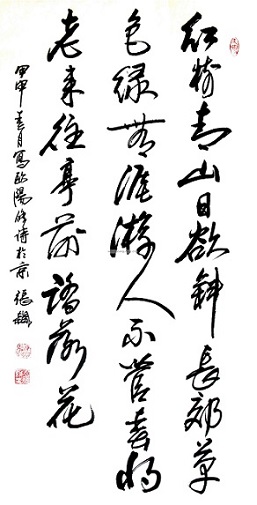 红树青山日欲斜长郊草
色绿无涯游人不管春将
老来往亭前踏落花
甲申春月写欧阳修诗于京 张飙